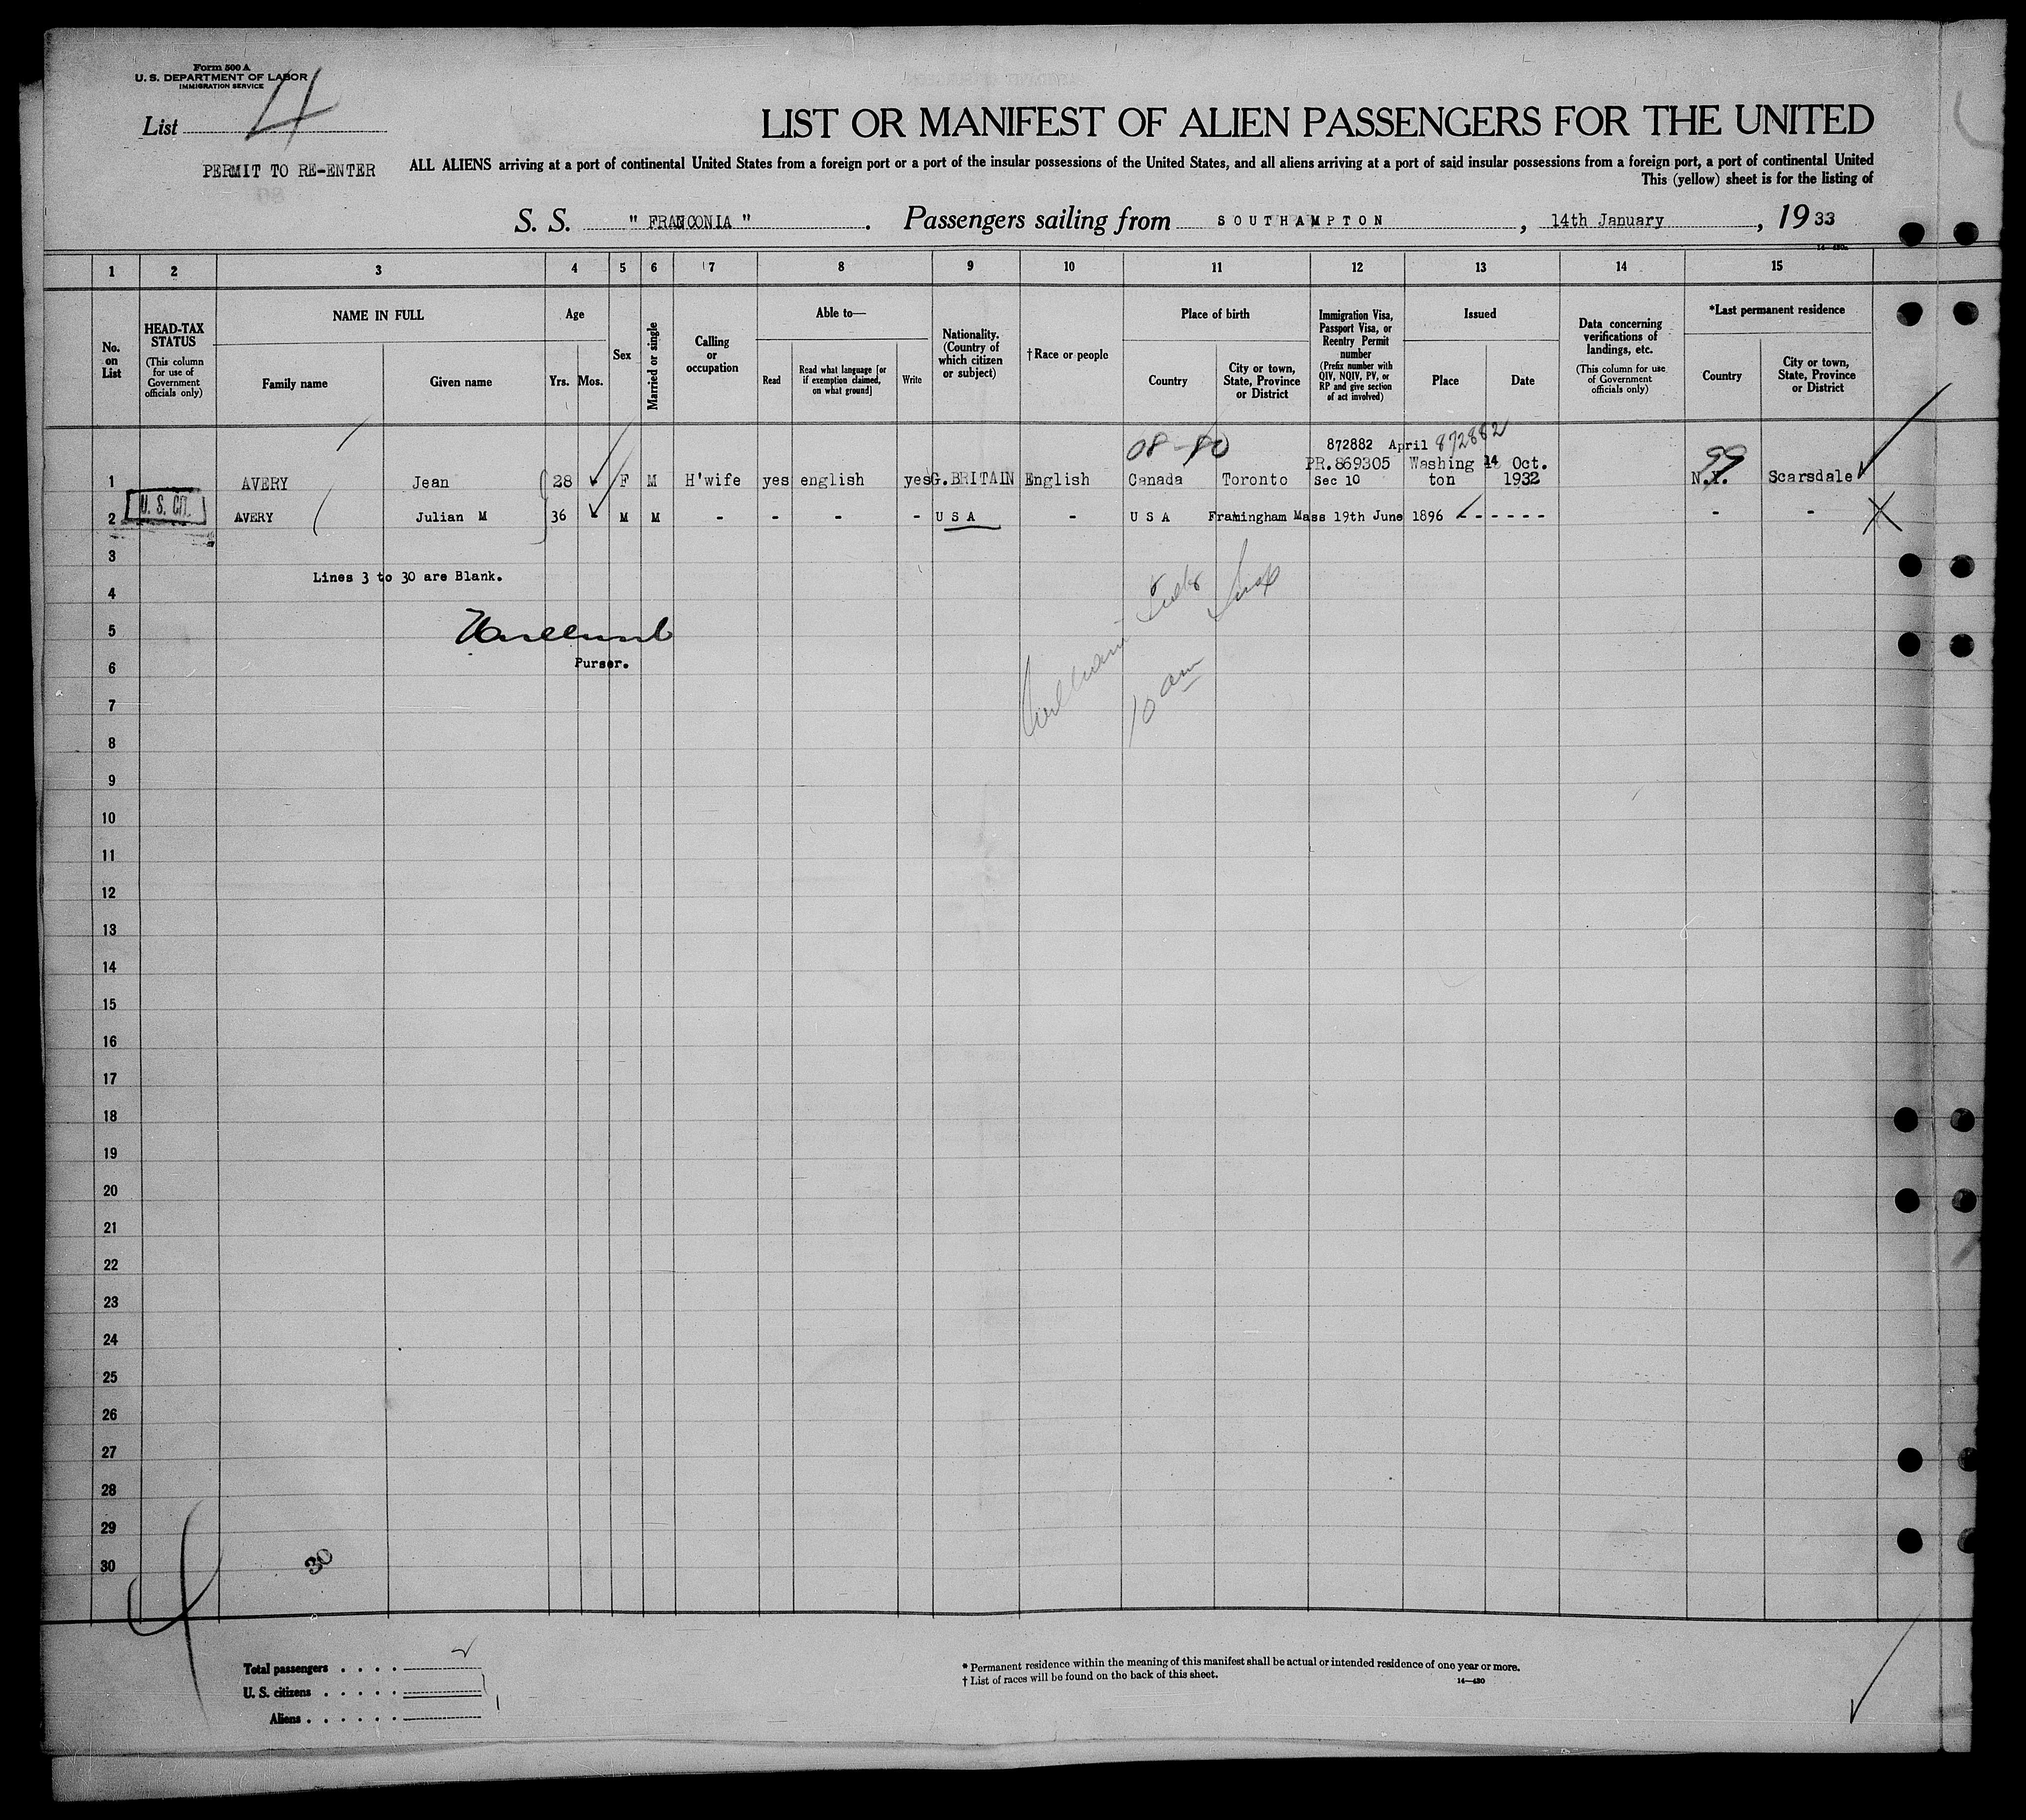 Form 500 A
U. S. DEPARTMENT OF LABOR
IMMIGRATION SERVICE
List 4
LIST OR MANIFEST OF ALIEN PASSENGERS FOR THE UNITED
PERMIT TO RE-ENTER
ALL ALIENS arriving at a port of continental United States from a foreign port or a port of the insular possessions of the United States, and all aliens arriving at a port of said insular possessions from a foreign port, a port of continental United
This (yellow) sheet is for the listing of
S. S. " FRANCONIA " . Passengers sailing from SOUTHAMPTON , 14th January , 1933
1 2 3 4 5 6 7 8 9 10 11 12 13 14 15
No. on List
HEAD-TAX STATUS
(This column for use of Government officials only)
NAME IN FULL
Family name
Given name
Age
Yrs. Mos.
Sex
Married or single
Calling or occupation
Able to—
Read
Read what language [or if exemption claimed, on what ground]
Write
Nationality. (Country of which citizen or subject)
†Race or people
Place of birth
Country
City or town, State, Province or District
Immigration Visa, Passport Visa, or Reentry Permit number
(Prefix number with QIV, NQIV, PV, or RP and give section of act involved)
Issued
Place
Date
Data concerning verifications of landings, etc.
(This column for use of Government officials only)
*Last permanent residence
Country
City or town, State, Province or District
08-80 872882 April 872882 99
1 AVERY Jean 28 F M H'wife yes english yes G.BRITAIN English Canada Toronto PR.869305 Sec 10 Washington 14 Oct. 1932 N.Y. Scarsdale
U. S. CIT.
2 AVERY Julian M 36 - M M - - - - U S A - U S A Framingham Mass 19th June 1896 - - - - - - - -
3
Lines 3 to 30 are Blank.
4
5
6 Purser.
10 am
7
8
9
10
11
12
13
14
15
16
17
18
19
20
21
22
23
24
25
26
27
28
29
30
30
4
Total passengers . . . . 2
U. S. citizens . . . . .
Aliens . . . . . .
* Permanent residence within the meaning of this manifest shall be actual or intended residence of one year or more.
† List of races will be found on the back of this sheet.
14—430